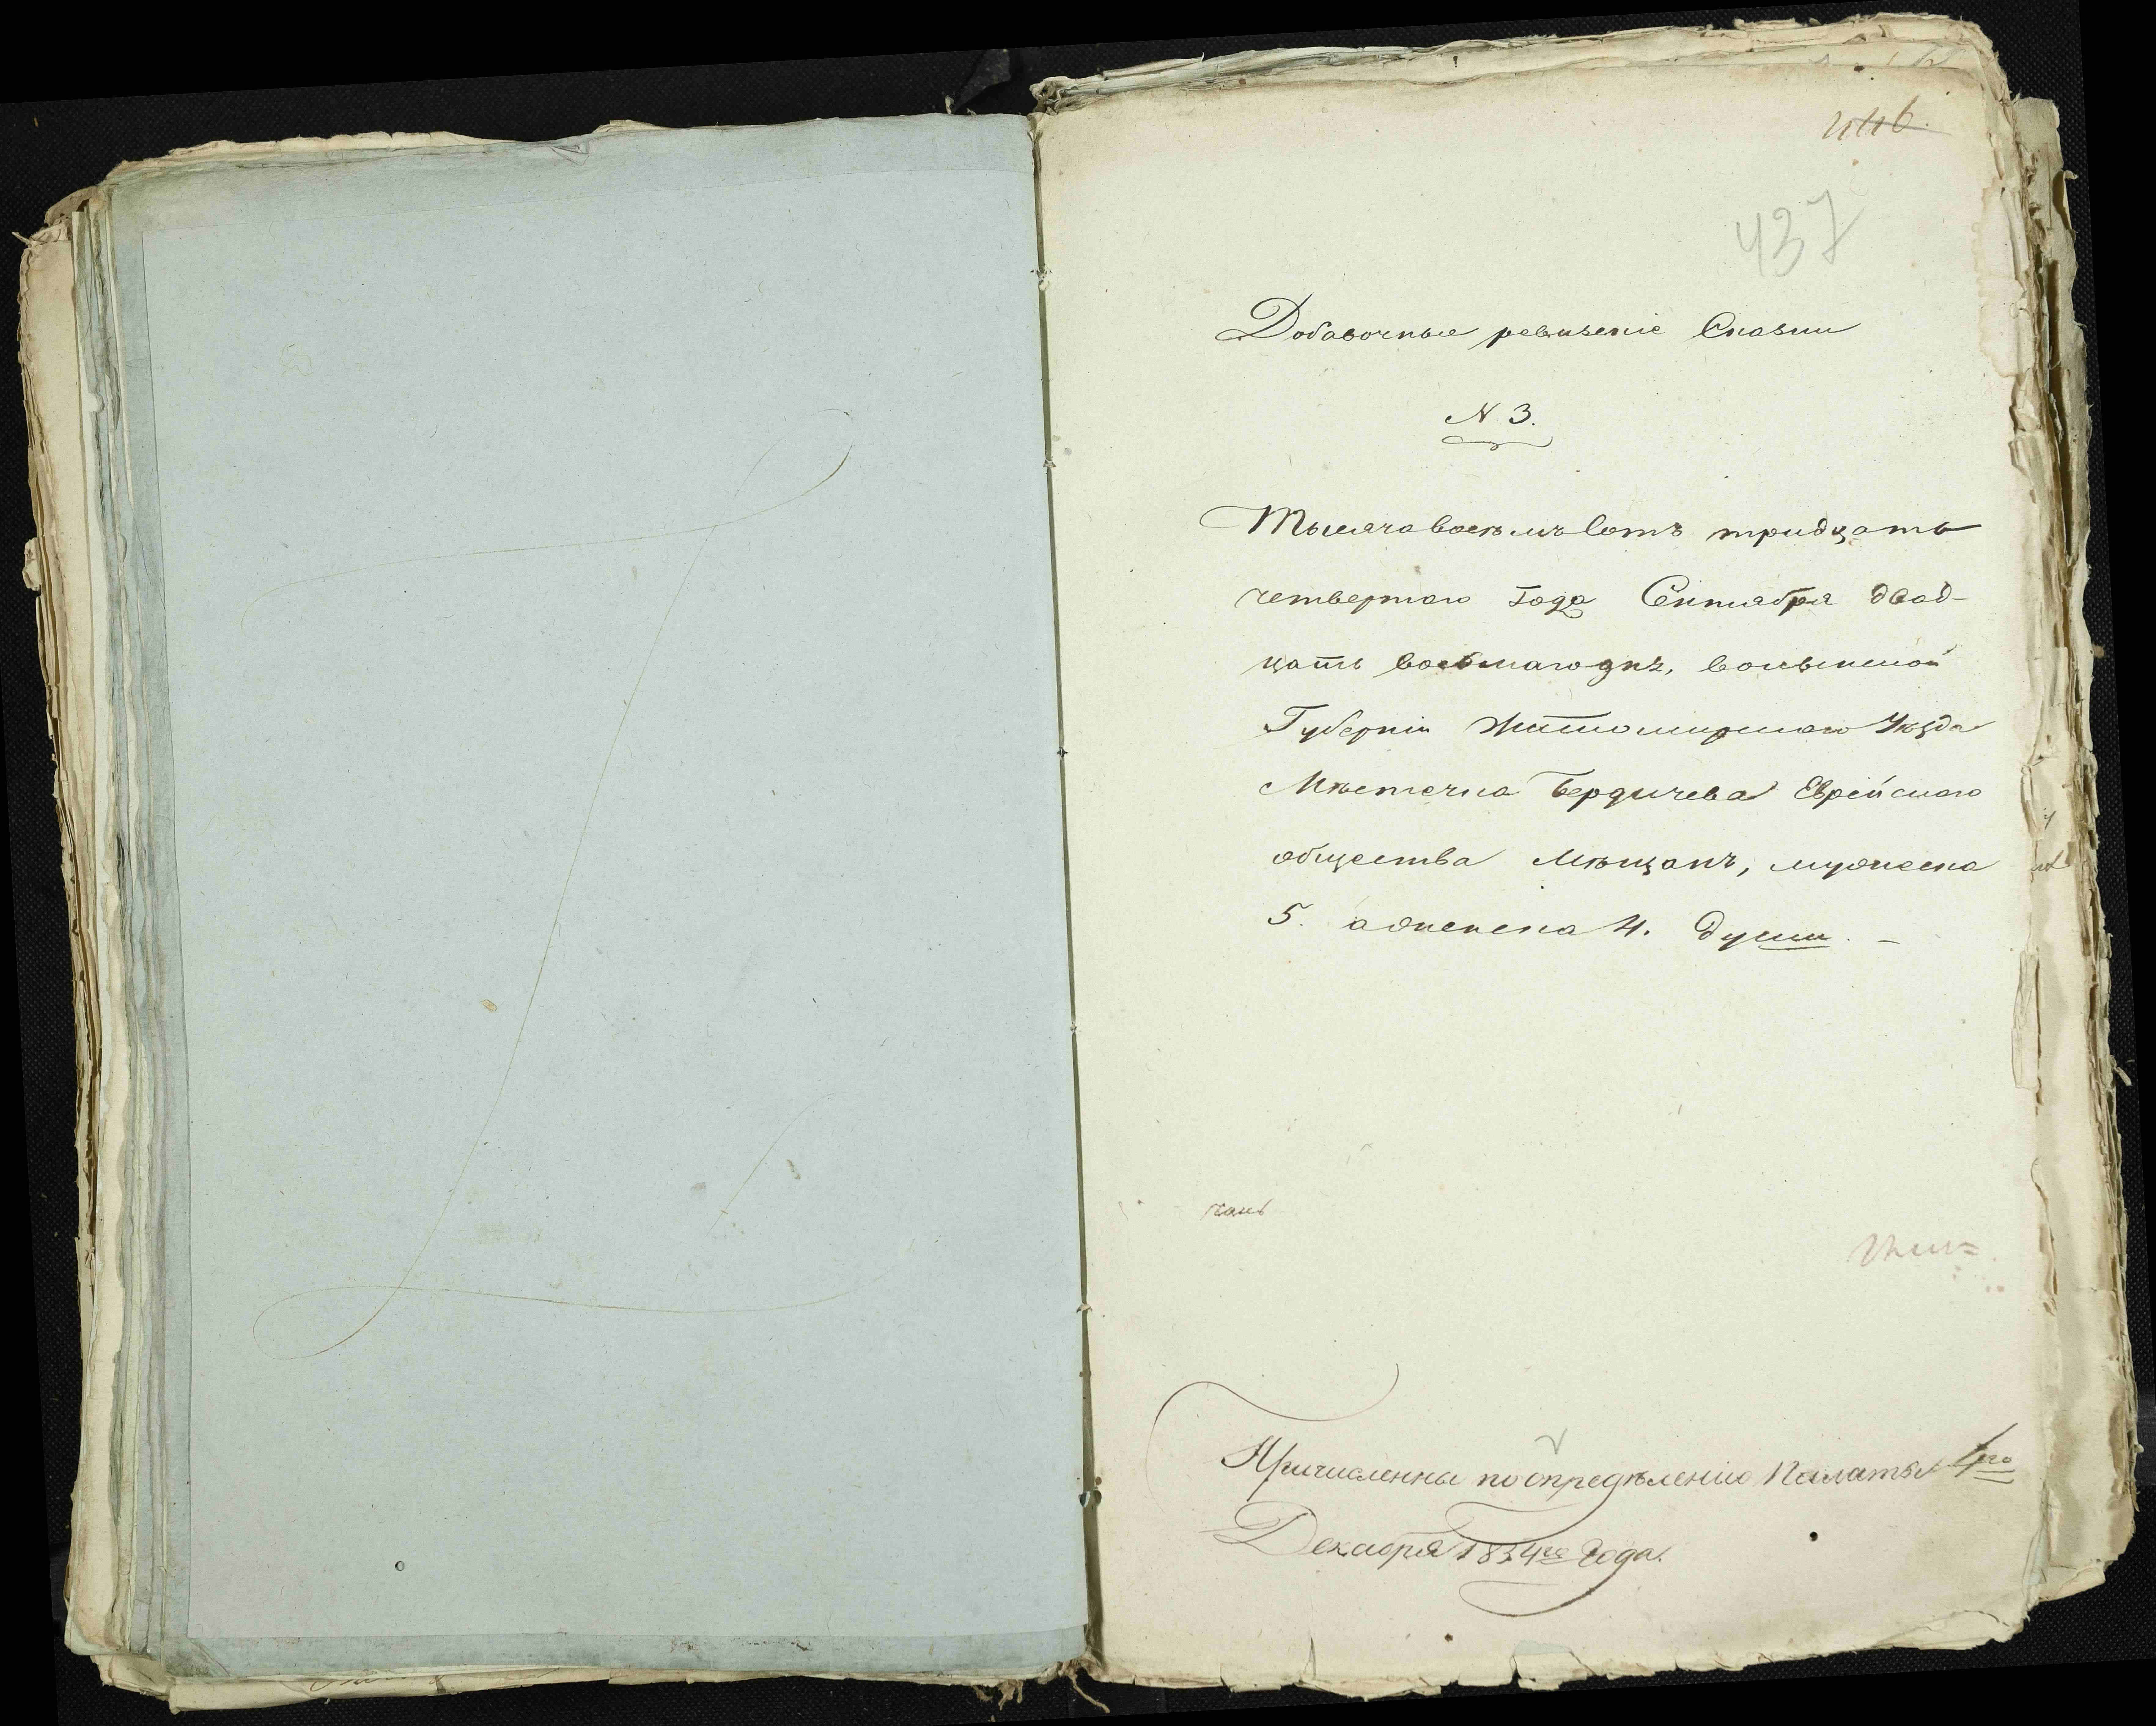 446.
437
Добавочные ревизскіе Сказки
N 3.
Тысяча восѣмъ Сотъ тридцать
четвертаго Года Сентября двад-
цать восьмаго дня, волынской
Губерніи Житомирскаго Уѣзда
Мѣстечка Бердичева Еврейскаго
общества Мѣщанъ, мужеска
5. а женска 4. души. –
Причисленны по опредѣленію Палаты 4го
Декабря 1834го Года.